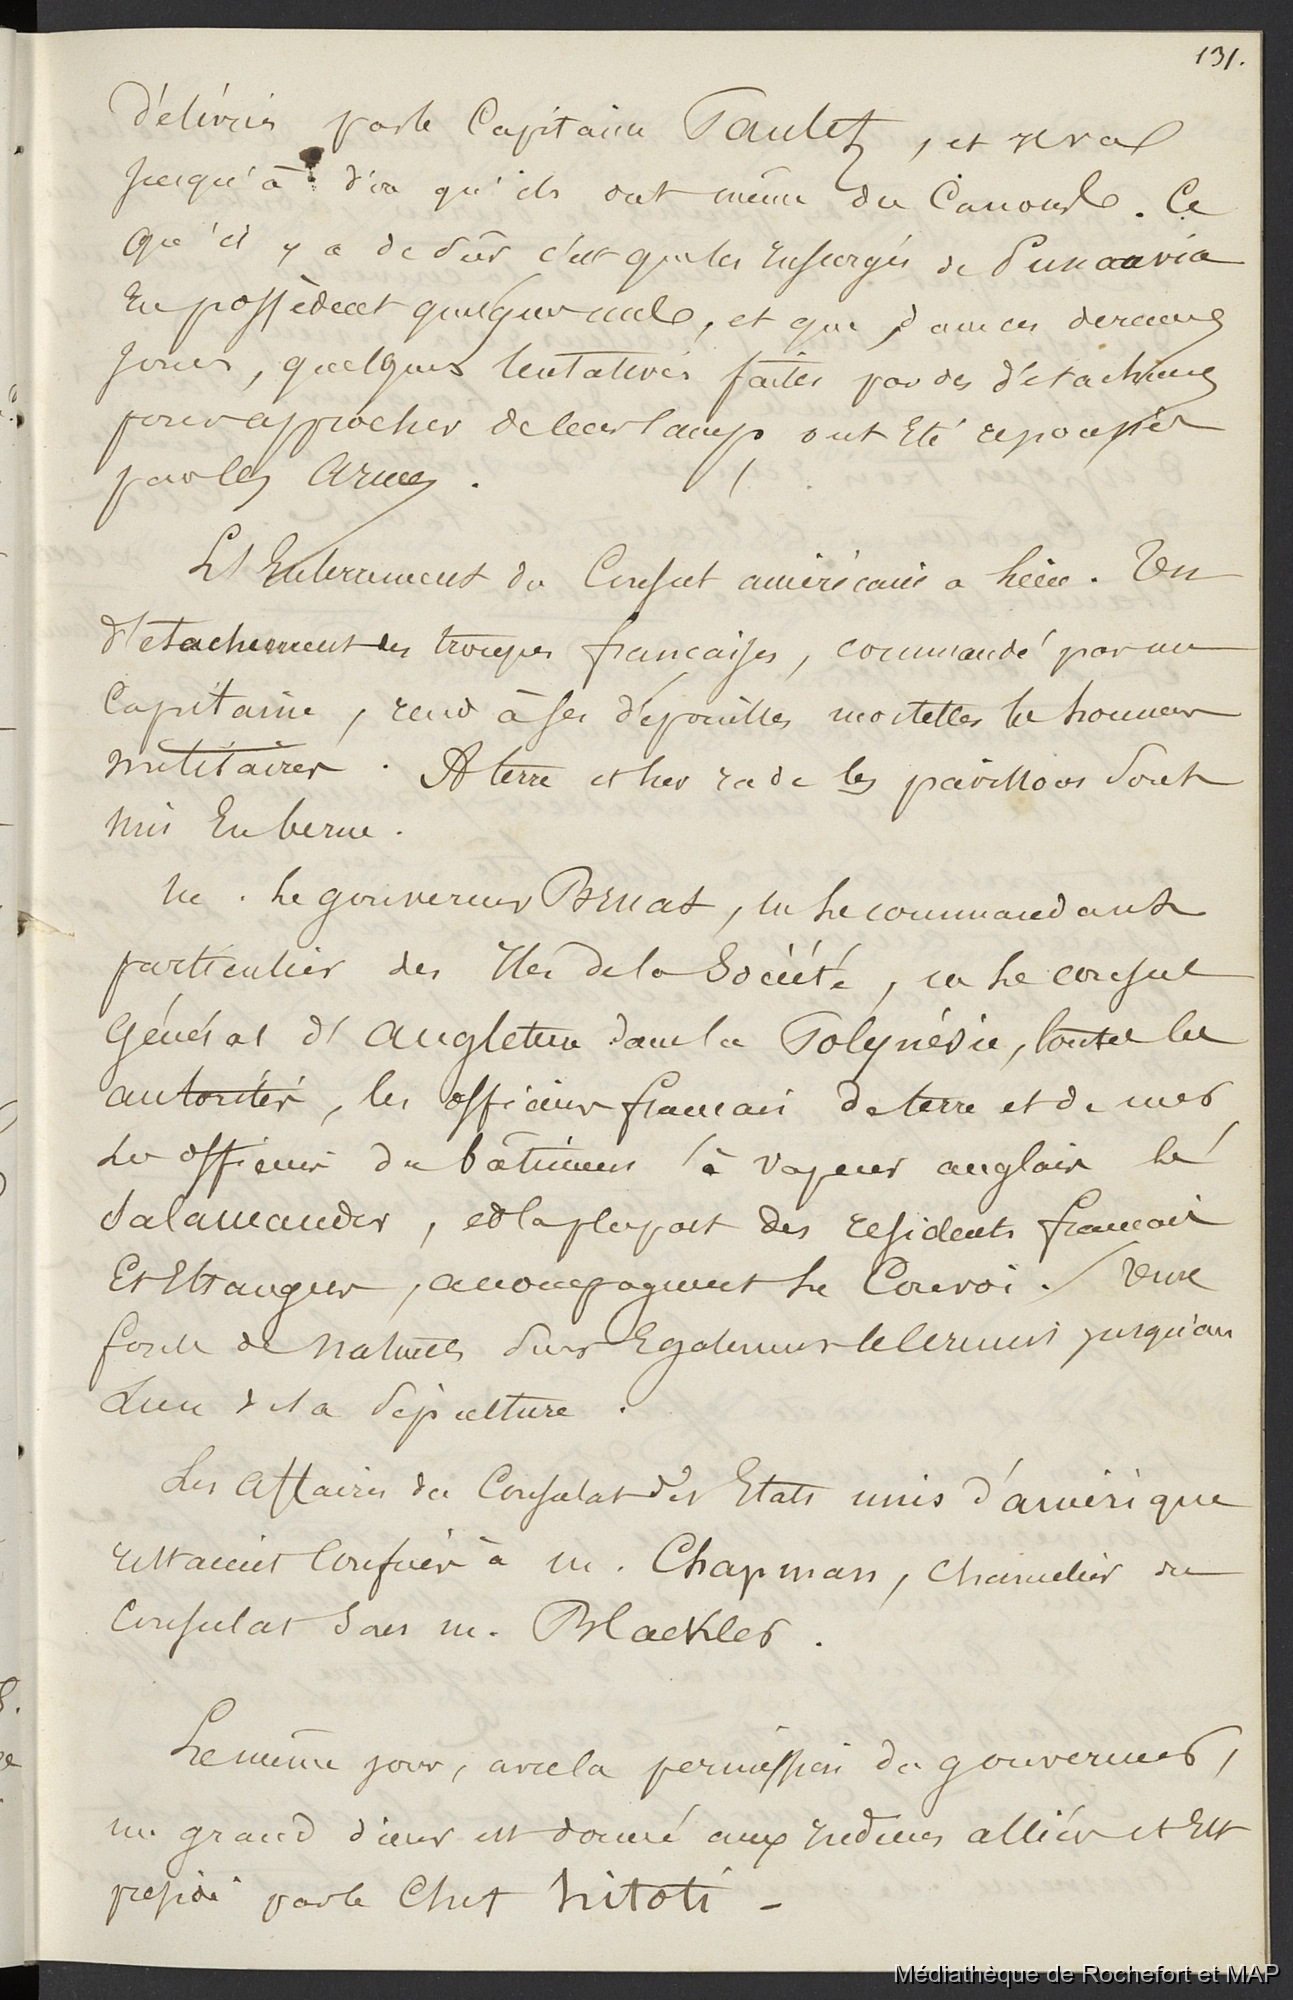 131.
délivrées par le Capitaine Paulet, et l'on va
jusqu'à dire qu'ils ont même du Canon. Ce
qu'il y a de sûr c'est que les insurgés de Punaavia
en possèdent quelques uns, et que, dans ces derniers
jours, quelques tentatives faites par des détachemens
pour approcher de leur camp, ont été repoussées
par les armes.
L'Enterrement du Consul américain a lieu. Un
détachement des troupes françaises, commandé par un
Capitaine, rend à ses dépouilles mortelles les honneurs
militaires. A terre et sur rade les pavillons sont
mis en berne.
M. le gouverneur Bruat, M le commandant
particulier des Iles de la Société, M le consul
Général d'Angleterre dans la Polynésie, toutes les
autorités, les officiers français de terre et de mer
les officiers du bâtiment à vapeur anglais le
Salamander, et la plupart des résidents français
et Etrangers, accompagnent le Convoi. Une
foule de naturels suit également le jusqu'au
lieu de la Sépulture.
Les affaires du Consulat des Etats unis d'amérique
restaient confiées à M. Chapman, chancelier du
Consulat sous M. Blackler.
Le même jour, avec la permission du gouverneur,
un grand dîner est donné aux indiens alliés et est
présidé par le Chef hitoti -
Médiathèque de Rochefort et MAP